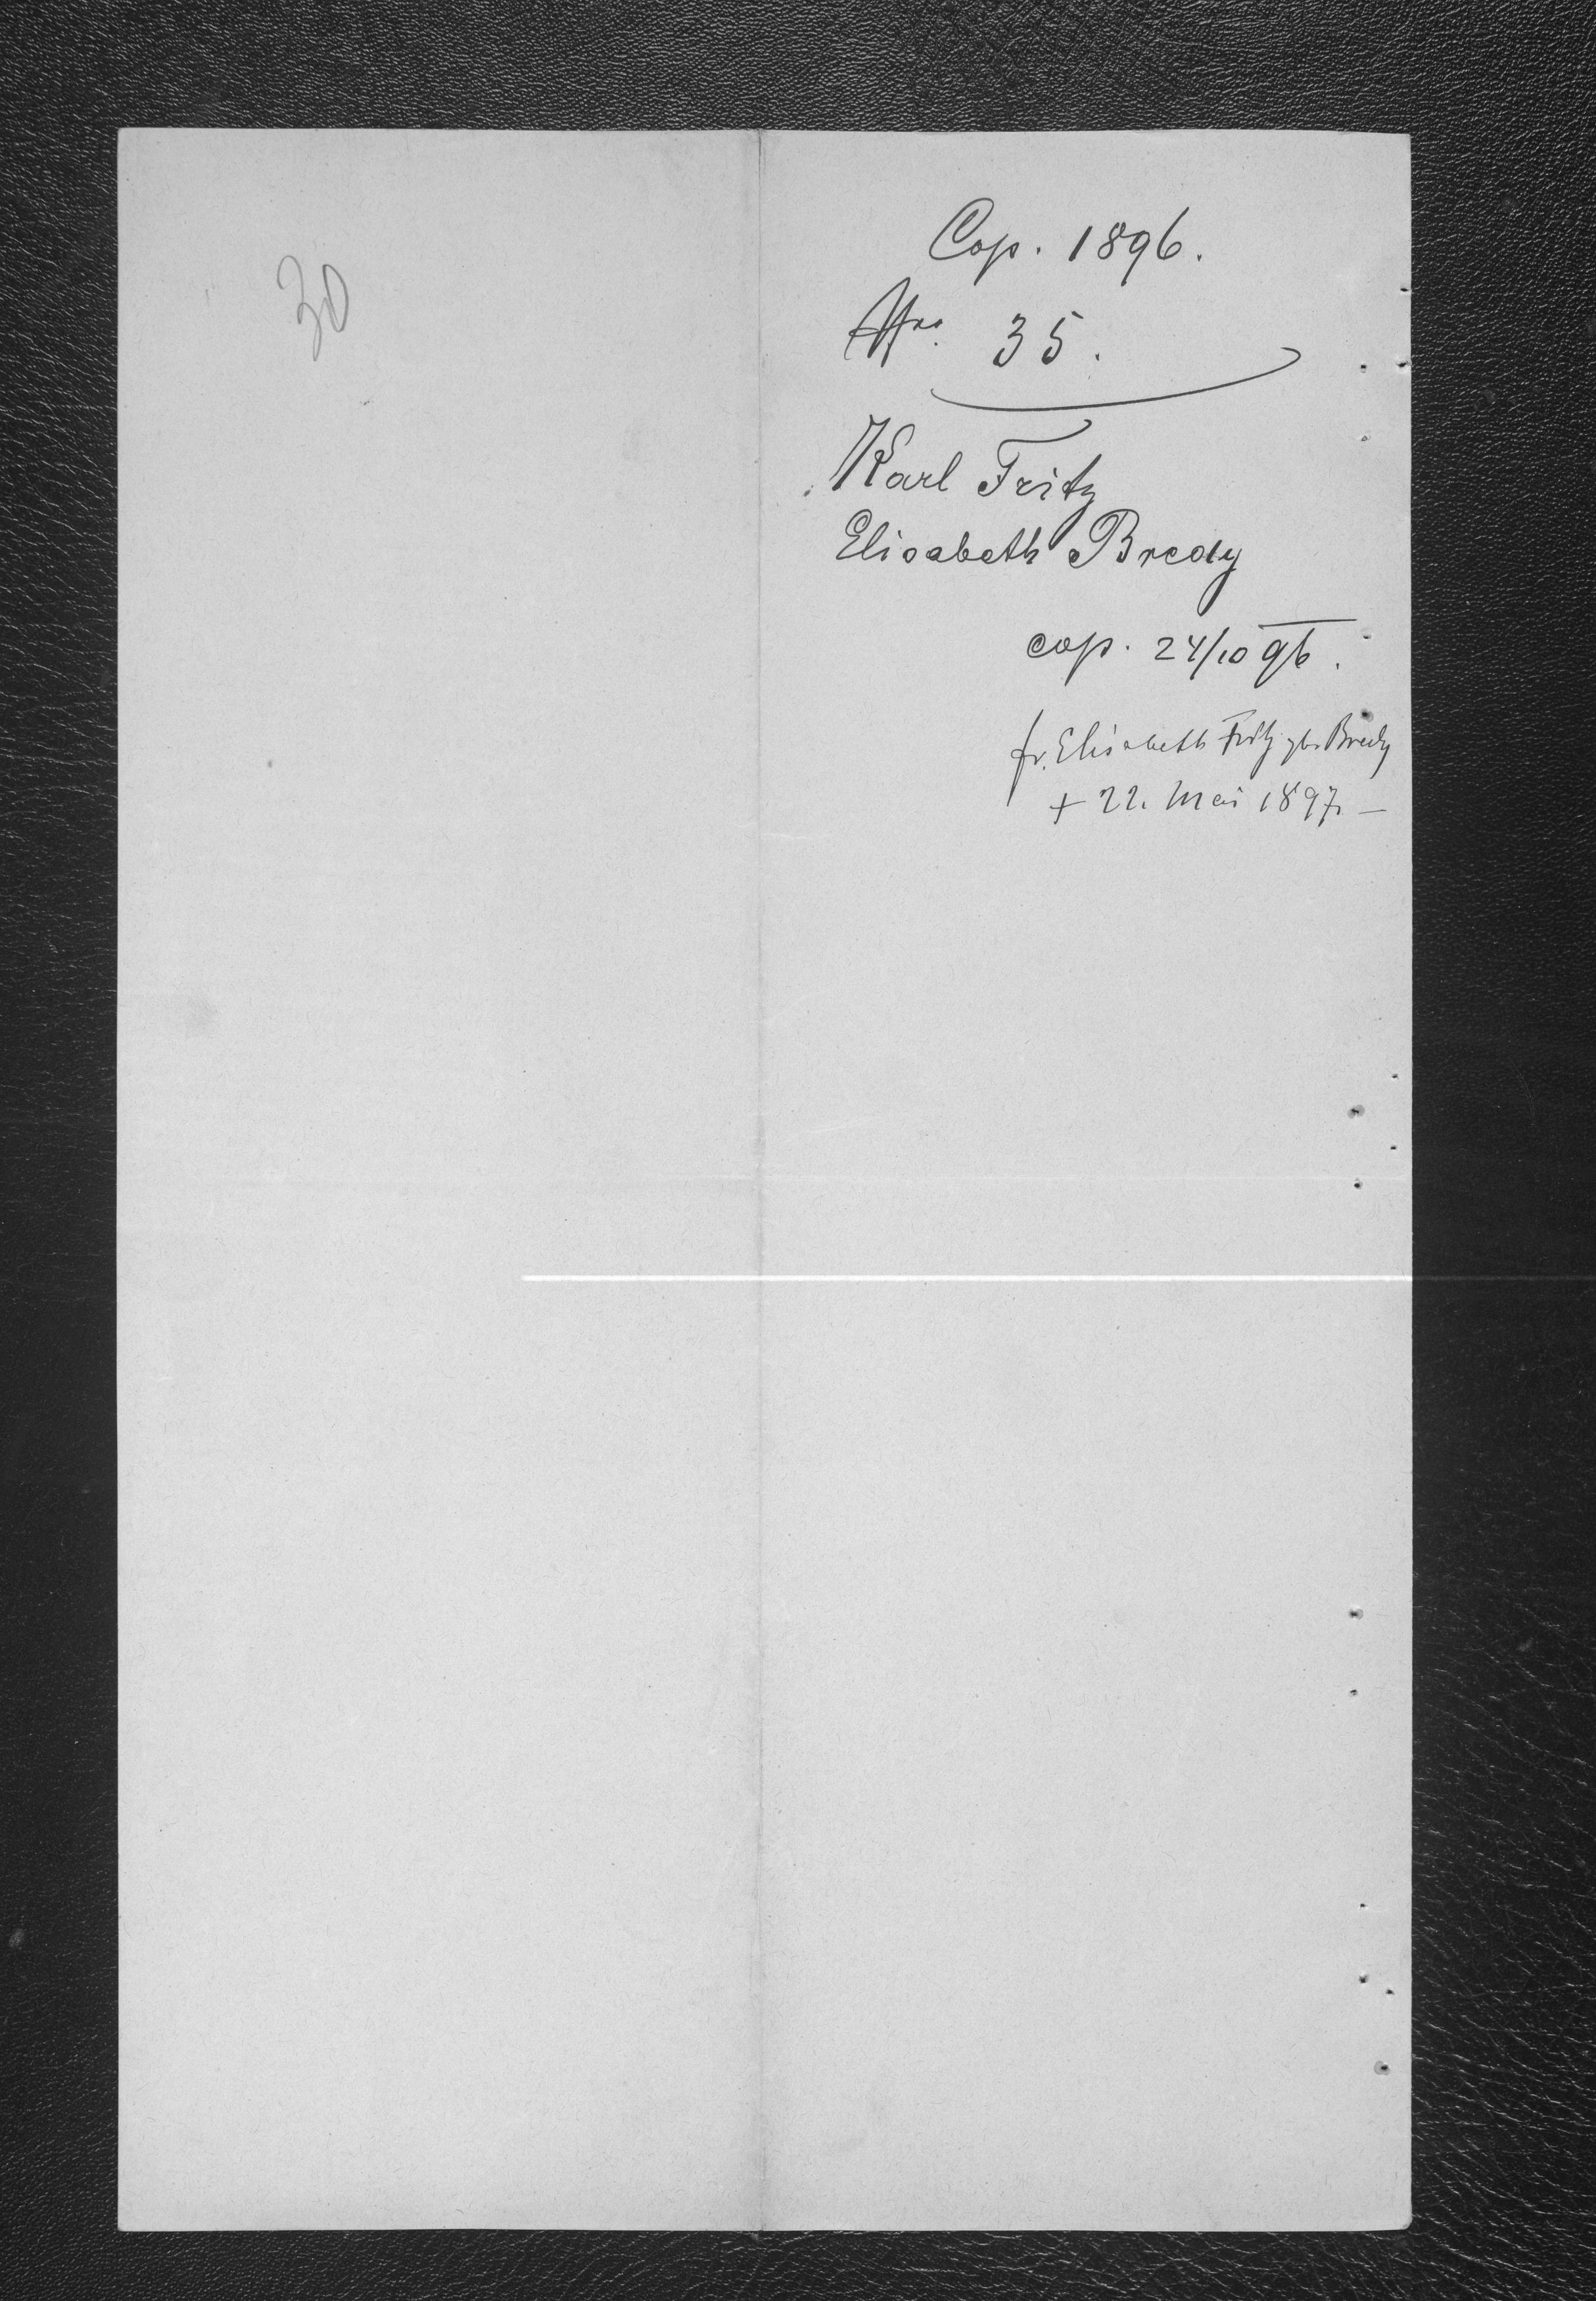 30
Cop. 1896.
Nro. 35.
Karl Fritz
Elisabeth Bredy
cop. 24/10 96.
fr. Elisabeth Fritz gb. Bredy
+ 22. Mai 1897. —